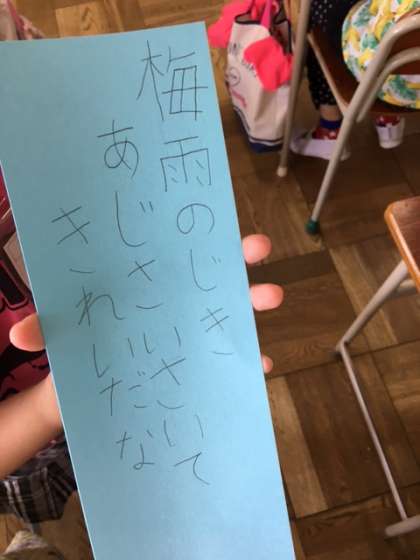 梅雨のじき
あじさいさいて
きれいだな